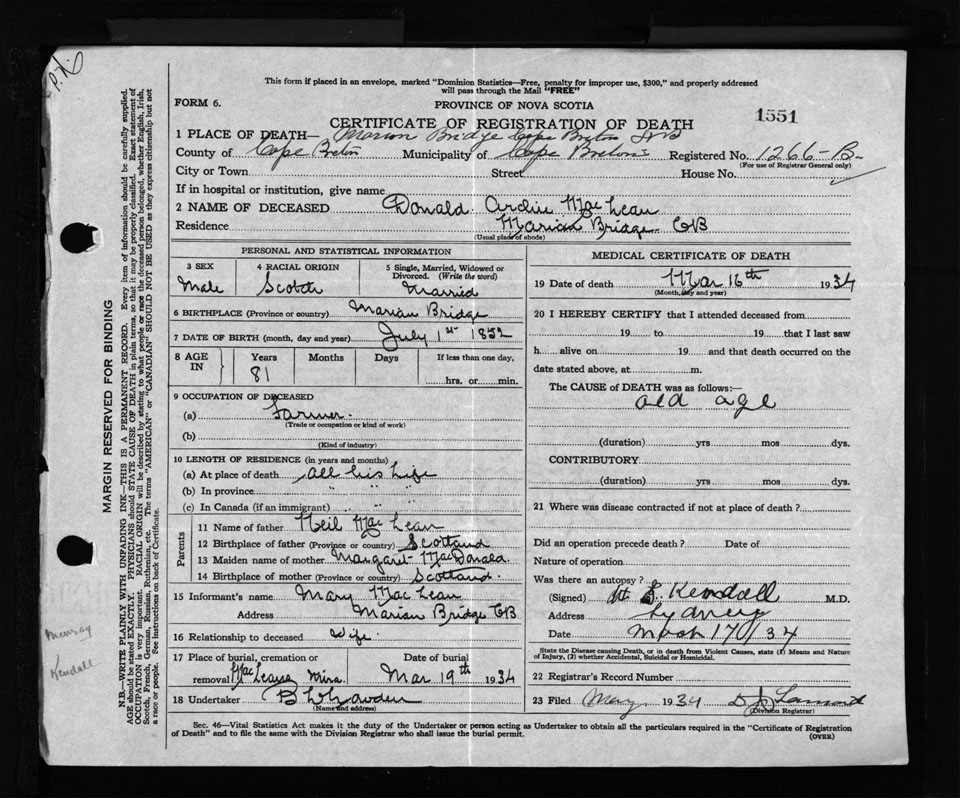 This form if placed in an envelope, marked "Dominion Statistics—Free, penalty for improper use, $300," and properly addressed
will pass through the Mail "FREE"
FORM 6.
PROVINCE OF NOVA SCOTIA
1551
CERTIFICATE OF REGISTRATION OF DEATH
1 PLACE OF DEATH— Marion Bridge Cape Breton
County of Cape Breton Municipality of Cape Breton Registered No. 1266-B-
(For use of Registrar General only)
City or Town Street House No.
If in hospital or institution, give name
2 NAME OF DECEASED Donald MacLean
Residence Marian Bridge CB
(Usual place of abode)
PERSONAL AND STATISTICAL INFORMATION
3 SEX
Male
4 RACIAL ORIGIN
Scotch
5 Single, Married, Widowed or
Divorced. (Write the word)
Married
6 BIRTHPLACE (Province or country) Marian Bridge
7 DATE OF BIRTH (month, day and year) July 1st 1852
8 AGE
IN
Years Months Days If less than one day,
81
hrs. or min.
9 OCCUPATION OF DECEASED
(a) Farmer
(Trade or occupation or kind of work)
(b)
(Kind of industry)
10 LENGTH OF RESIDENCE (in years and months)
(a) At place of death all his life
(b) In province " "
(c) In Canada (if an immigrant) " "
Parents
11 Name of father Neil MacLean
12 Birthplace of father (Province or country) Scotland
13 Maiden name of mother Margaret MacDonald
14 Birthplace of mother (Province or country) Scotland
15 Informant's name Mary MacLean
Address Marian Bridge CB
16 Relationship to deceased Wife
17 Place of burial, cremation or Date of burial
removal MacLeans Mira Mar 19th 1934
18 Undertaker
(Name and address)
MEDICAL CERTIFICATE OF DEATH
19 Date of death Mar 16th 1934
(Month, day and year)
20 I HEREBY CERTIFY that I attended deceased from
19 to 19 that I last saw
h alive on 19 and that death occurred on the
date stated above, at m.
The CAUSE of DEATH was as follows:—
old age
(duration) yrs mos dys.
CONTRIBUTORY
(duration) yrs mos dys.
21 Where was disease contracted if not at place of death?
Did an operation precede death? Date of
Nature of operation
Was there an autopsy?
(Signed) Kendall M.D.
Address Sydney
Date March 17 / 34
State the Disease causing Death, or in death from Violent Causes, state (1) Means and Nature
of Injury, (2) whether Accidental, Suicidal or Homicidal.
22 Registrar's Record Number
23 Filed May 1934
(Division Registrar)
Sec. 46—Vital Statistics Act makes it the duty of the Undertaker or person acting as Undertaker to obtain all the particulars required in the "Certificate of Registration
of Death" and to file the same with the Division Registrar who shall issue the burial permit.
(OVER)
MARGIN RESERVED FOR BINDING
N.B.—WRITE PLAINLY WITH UNFADING INK—THIS IS A PERMANENT RECORD. Every item of information should be carefully supplied.
AGE should be stated EXACTLY. PHYSICIANS should STATE CAUSE OF DEATH in plain terms, so that it may be properly classified. Exact statement of
OCCUPATION is very important. RACIAL ORIGIN will be described by stating to what people or race the deceased person belonged, whether English, Irish,
Scotch, French, German, Russian, Ruthenian, etc. The terms "AMERICAN" or "CANADIAN" SHOULD NOT BE USED as they express citizenship but not
a race or people. See instructions on back of Certificate.
Kendall